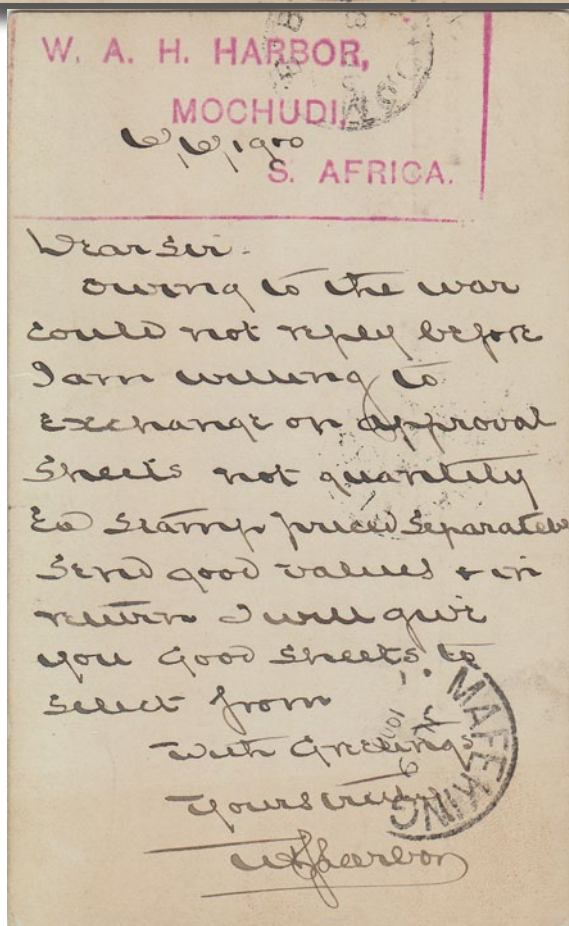 W. A. H. HARBOR,
MOCHUDI,
6/6/1900
S. AFRICA.
Dear Sir.
owing to the war
could not reply before
I am willing to
exchange on approval
sheets not quantity
Ea stamp priced separately
Send good values & in
return I will give
you good sheets to
select from
With Greetings
Yours truly
WAHarbor
MAFEKING